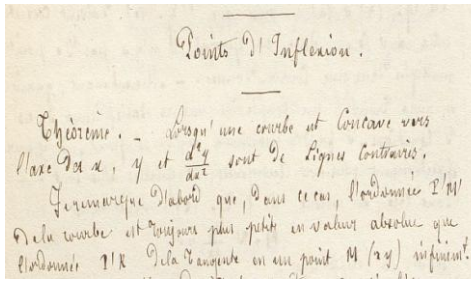 Points d'Inflexion.
Théorème. _ Lorsqu'une courbe est Concave vers
l'axe des x, y et d²y/dx² sont de signes contraires.
Je remarque d'abord que, dans ce cas, l'ordonnée P'M'
de la courbe est toujours plus petite en valeur absolue que
l'ordonnée P'R de la tangente en un point M (xy) infinimt.